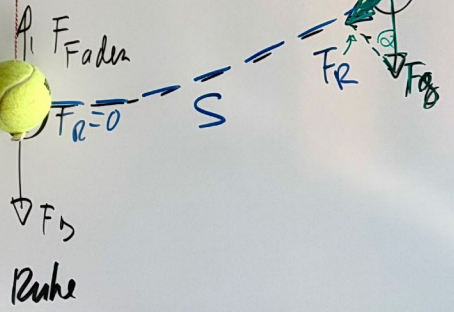 F
Faden
F_R=0
S
F_R
α
F_g
Ruhe